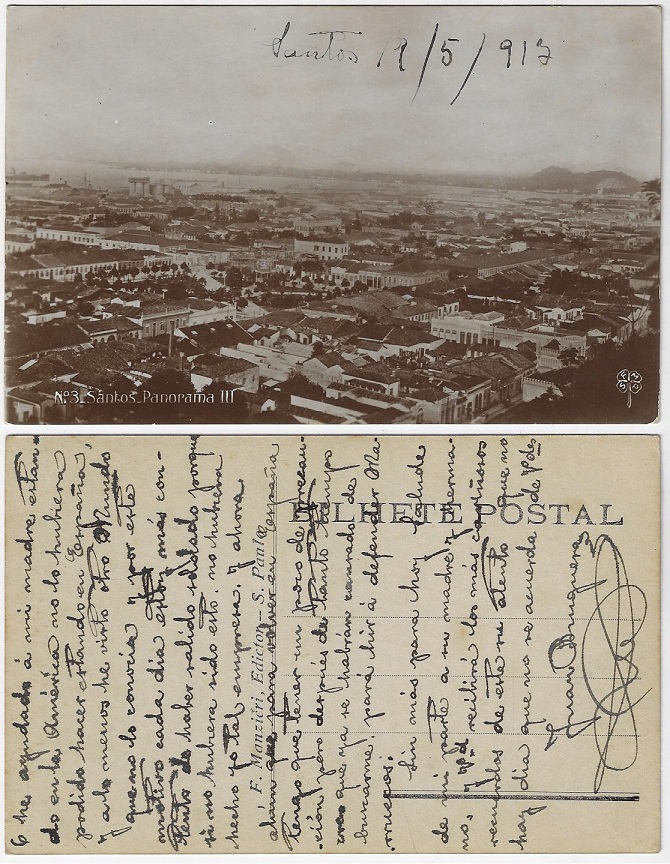 Santos 19/5/917
Nº3 Santos Panorama III
BILHETE POSTAL
F. Manziéri, Edictor, S. Paulo
6 he ayudado á mi madre estan-
do en la América no lo hubiera
podido hacer estando en España,
y alo menos he visto otro Mundo
que no lo conocia y por este
motivo cada dia estoy más con-
tento de haber salido soldado porque
si no hubiera sido esto. no hubiera
hecho yo tal empresa. y ahora
aún que para volver en España
tengo que tener un poco de precau-
ción pero después de tanto tiempo
creo que ya se habran cansado de
buscarme. pará hir á defender Ma-
rruecos.
Sin más para hoy salude
de mi parte á su madre y herma-
no, y Vd recibirá los más cariñosos
recuerdos de este su atento que no
hay dia que no se acuerda de Vdes
Juan